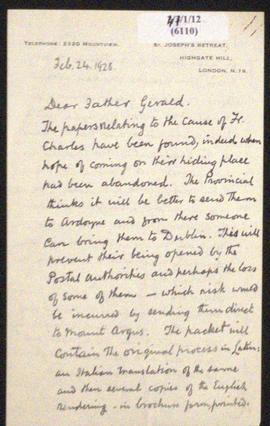 1/1/12
(6110)
TELEPHONE: 2320 MOUNTVIEW.
ST. JOSEPH'S RETREAT,
HIGHGATE HILL,
LONDON, N.19.
Feb. 24. 1928.
Dear Father Gerald.
The papers relating to the cause of Fr.
Charles have been found, indeed when
hope of coming on their hiding place
had been abandoned. The Provincial
thinks it will be better to send them
to Ardoyne and from there someone
can bring them to Dublin. This will
prevent their being opened by the
Postal authorities and perhaps the loss
of some of them — which risk would
be incurred by sending them direct
to Mount Argus. The packet will
contain the original process in Latin:
an Italian translation of the same
and then several copies of the English
rendering - in brochure form, printed.